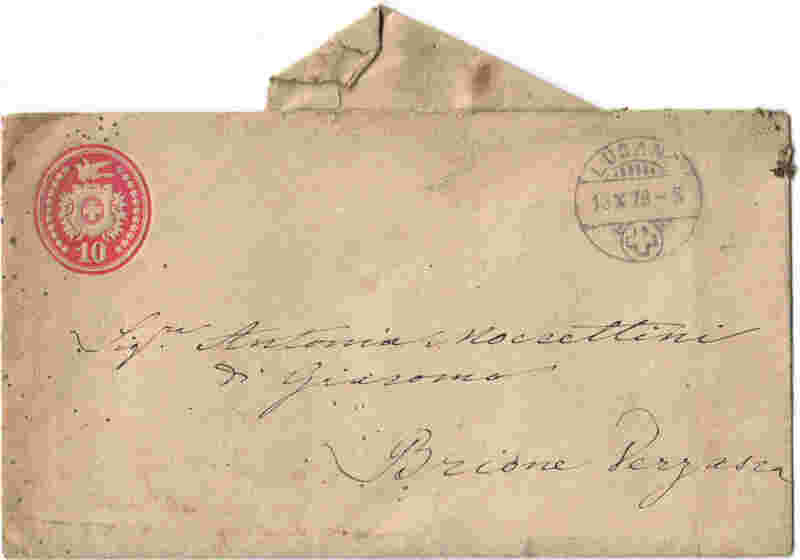 10
LUGAN
13 X 78 - 5
Sig.ra Antonia Mozzettini
di Giacomo
Brione Verzasca